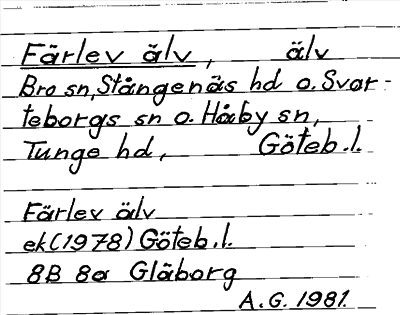 Färlev älv, älv
Bro sn, Stångenäs hd o. Svar-
teborgs sn o. Håby sn,
Tunge hd, Göteb.l.
Färlev älv
ek (1978) Göteb.l.
8B 8a Gläborg
A.G. 1981.